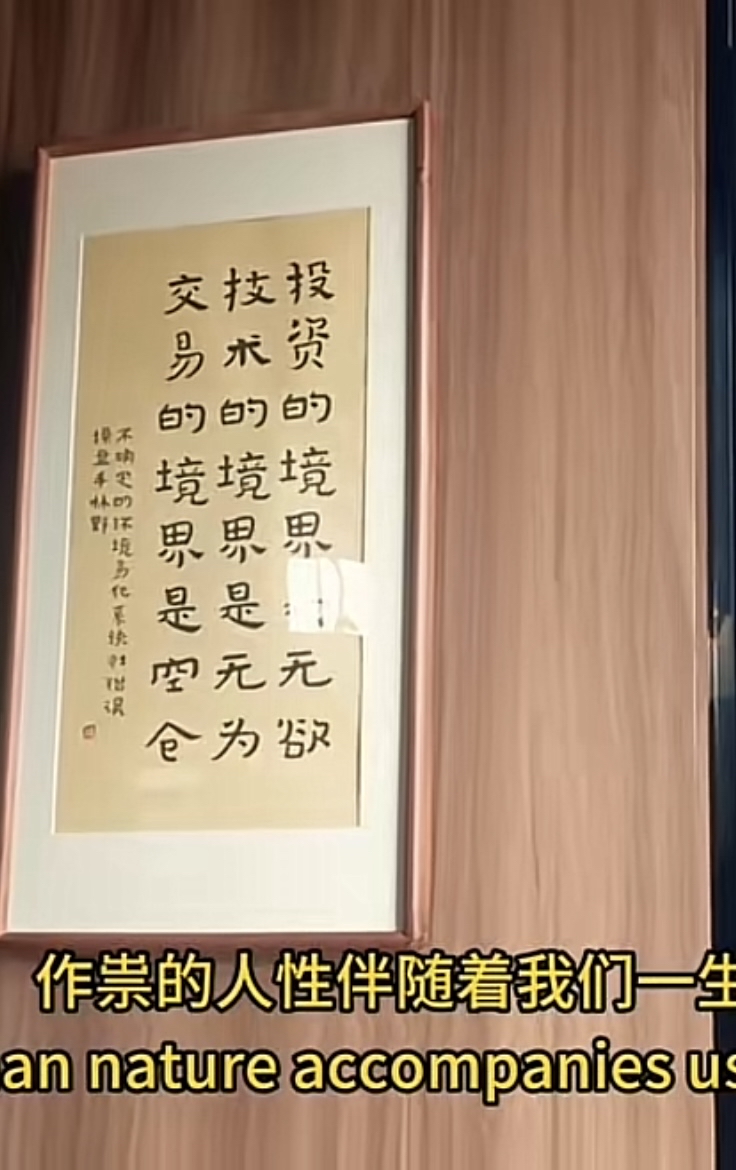 投资的境界 无欲
技术的境界是无为
交易的境界是空仓
不确定的环境易化系统
操盘手林野
作祟的人性伴随着我们一生
an nature accompanies us